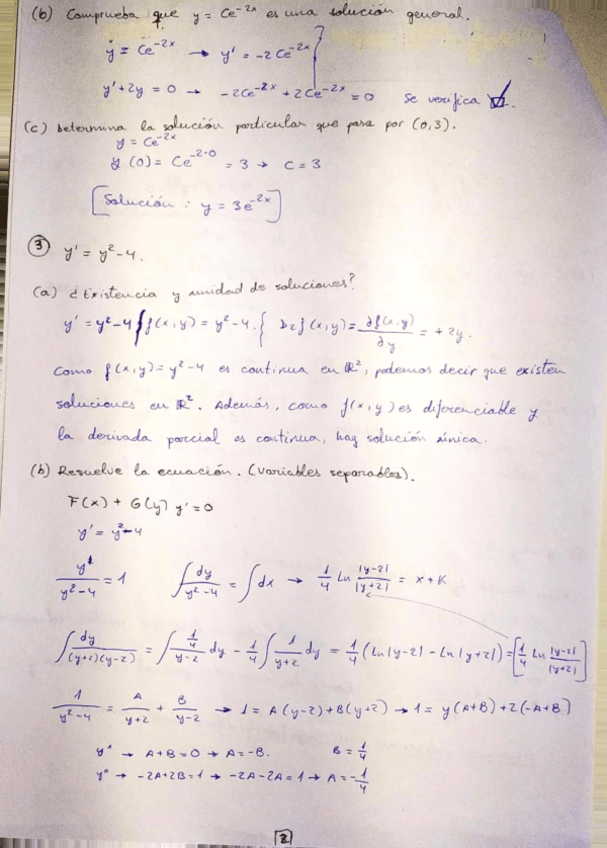 (b) Comprueba que y = Ce^{-2x} es una solución general.
y = Ce^{-2x} → y' = -2Ce^{-2x}
y' + 2y = 0 → -2Ce^{-2x} + 2Ce^{-2x} = 0 Se verifica ☑.
(c) Determina la solución particular que pasa por (0,3).
y = Ce^{-2x}
y(0) = Ce^{-2·0} = 3 → C = 3
[Solución : y = 3e^{-2x}]
③ y' = y² - 4.
(a) ¿Existencia y unidad de soluciones?
y' = y² - 4 { f(x,y) = y² - 4. { D₂f(x,y) = ∂f(x,y)/∂y = +2y.
Como f(x,y) = y² - 4 es continua en ℝ², podemos decir que existen
soluciones en ℝ². Además, como f(x,y) es diferenciable y
la derivada parcial es continua, hay solución única.
(b) Resuelve la ecuación. (Variables separables).
F(x) + G(y) y' = 0
y' = y² - 4
y'/(y² - 4) = 1 ∫ dy/(y² - 4) = ∫ dx → 1/4 Ln |y-2|/|y+2| = x + K
∫ dy/((y+2)(y-2)) = ∫ (1/4)/(y-2) dy - 1/4 ∫ 1/(y+2) dy = 1/4 (Ln|y-2| - Ln|y+2|) = [1/4 Ln |y-2|/|y+2|]
1/(y² - 4) = A/(y+2) + B/(y-2) → 1 = A(y-2) + B(y+2) → 1 = y(A+B) + 2(-A+B)
y¹ → A+B = 0 → A = -B. B = 1/4
y⁰ → -2A+2B = 1 → -2A-2A = 1 → A = -1/4
2